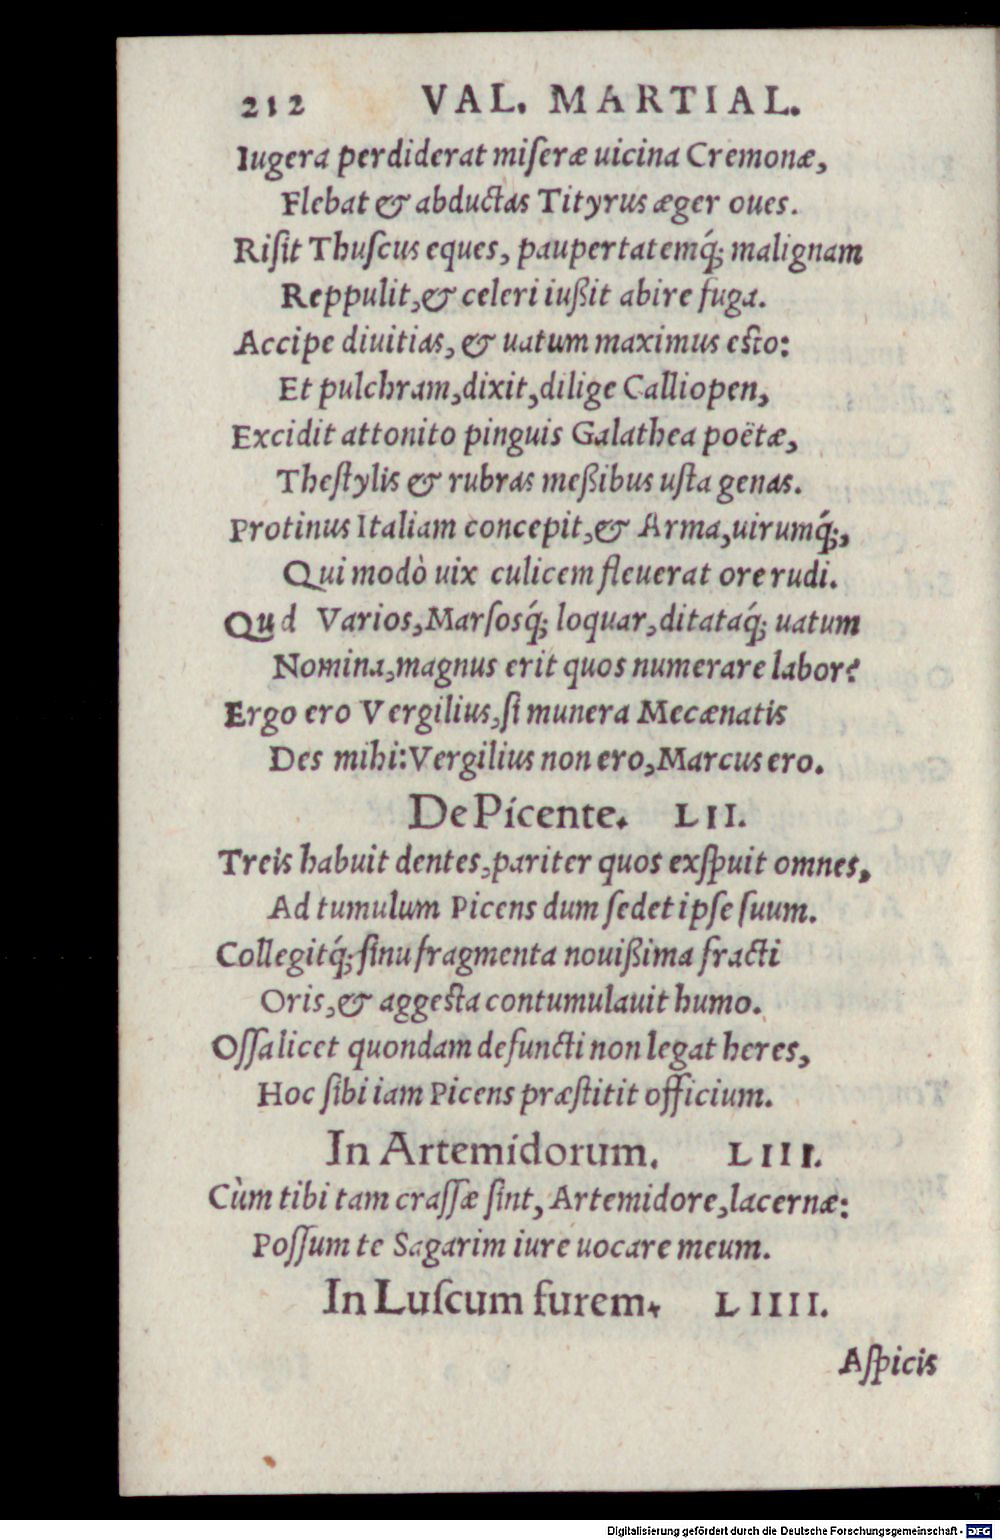 212 VAL. MARTIAL.
Iugera perdiderat miſeræ uicina Cremonæ,
Flebat & abductas Tityrus æger oues.
Riſit Thuſcus eques, paupertatemq́; malignam
Reppulit, & celeri iußit abire fuga.
Accipe diuitias, & uatum maximus esto:
Et pulchram, dixit, dilige Calliopen,
Excidit attonito pinguis Galathea poëtæ,
Theſtylis & rubras meßibus uſta genas.
Protinus Italiam concepit, & Arma, uirumq́;,
Qui modò uix culicem fleuerat ore rudi.
Qud Varios, Marſosq́; loquar, ditataq́; uatum
Nomina, magnus erit quos numerare labor?
Ergo ero Vergilius, ſi munera Mecænatis
Des mihi: Vergilius non ero, Marcus ero.
De Picente. LII.
Treis habuit dentes, pariter quos exſpuit omnes,
Ad tumulum Picens dum ſedet ipſe ſuum.
Collegitq́; ſinu fragmenta nouißima fracti
Oris, & aggesta contumulauit humo.
Oſſa licet quondam defuncti non legat heres,
Hoc ſibi iam Picens præſtitit officium.
In Artemidorum. LIII.
Cùm tibi tam craſſæ ſint, Artemidore, lacernæ:
Poſſum te Sagarim iure uocare meum.
In Luſcum furem. LIIII.
Aſpicis
Digitalisierung gefördert durch die Deutsche Forschungsgemeinschaft - DFG